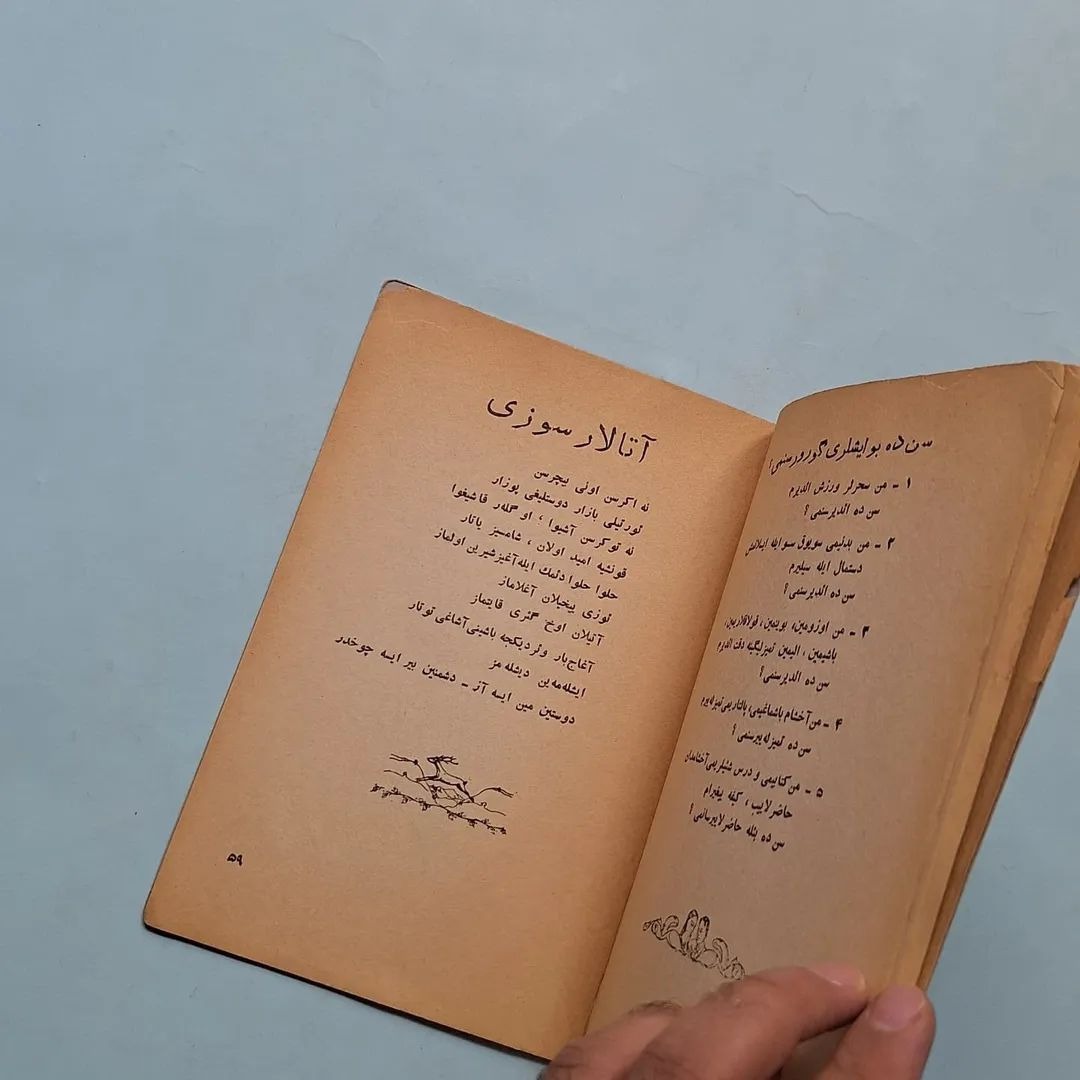 سن ده بو ایشلری گورورسنمی؟
۱ - من سحرلر ورزش الدیرم
سن ده الدیرسنمی؟
۲ - من بدنیمی سویوق سو ایله ایسلادیب
دستمال ایله سیلیرم
سن ده الدیرسنمی؟
۳ - من اوزومین، بوینمین، قولاقلاریمین،
باشیمین، الیمین تمیزلیگینه دقت الدیرم
سن ده الدیرسنمی؟
۴ - من آخشام باشماغیمی، پالتاریمی تمیزله ییرم
سن ده تمیزله ییرسنمی؟
۵ - من کتابیمی و درس شئیلریمی آخشامدان
حاضرلاییب، کیفه یغیرام
سن ده بئله حاضرلاییرسانمی؟
آتالار سوزی
نه اکرسن اونی بیچرسن
تورتیلی بازار دوستلیغی پوزار
نه توکرسن آشیوا، او گله‌ر قاشیغوا
قونشیه امید اولان، شامسیز یاتار
حلوا حلوا دئمك ایله آغیز شیرین اولماز
توزی ییخیلان آغلاماز
آتیلان اوخ گئری قایتماز
آغاج بار وئردیکجه باشینی آشاغی توتار
ایشله مه ین دیشله مز
دوستین مین ایسه آز - دشمنین بیر ایسه چوخدر
۵۹